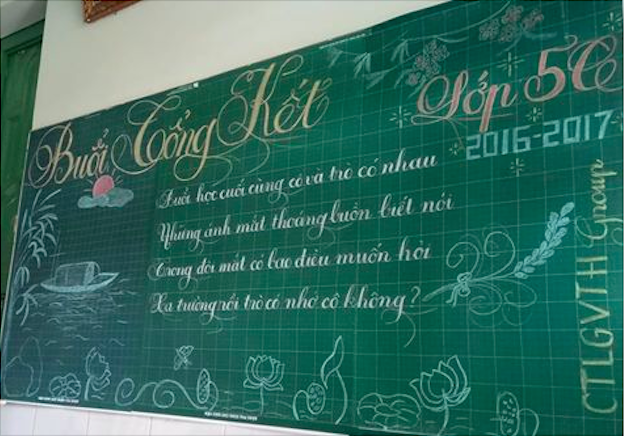 Buổi Tổng Kết
Lớp 5C
2016-2017
Buổi học cuối cùng cô và trò có nhau
Những ánh mắt thoáng buồn biết nói
Trong đôi mắt cô bao điều muốn hỏi
Xa trường rồi trò có nhớ cô không?
CTLGVTH Group